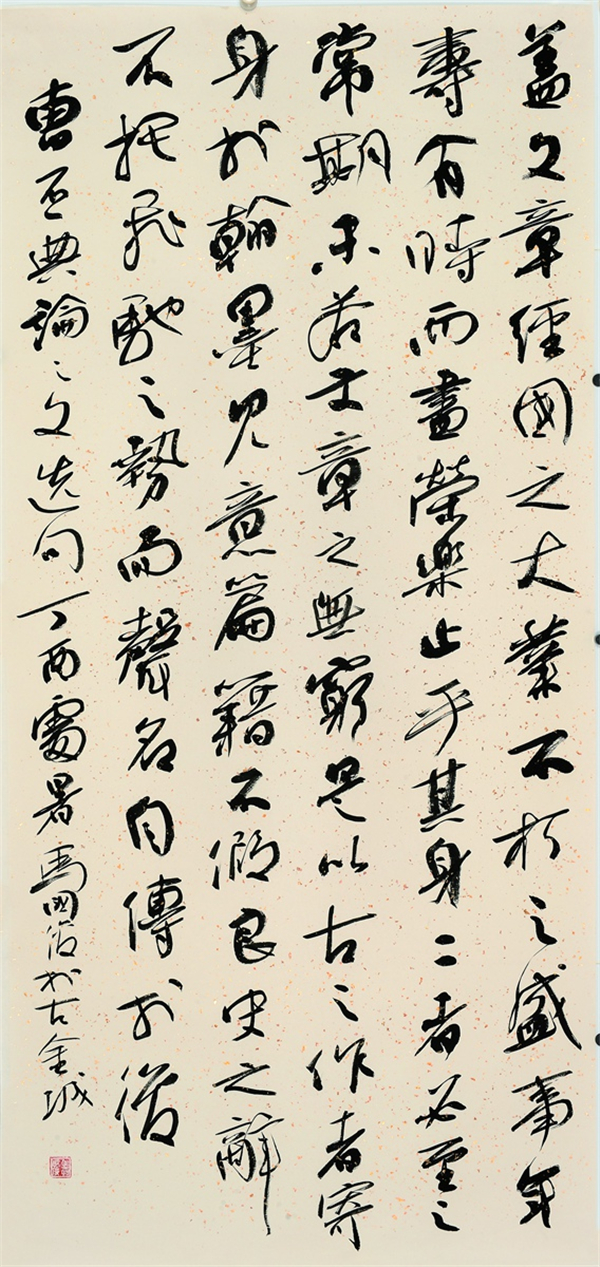 蓋文章經國之大業不朽之盛事年
壽有時而盡榮樂止乎其身二者必至之
常期未若文章之無窮是以古之作者寄
身於翰墨見意篇籍不假良史之辭
不托飛馳之勢而聲名自傳於後
曹丕典論之文選句丁酉處暑馬國俊於古金城